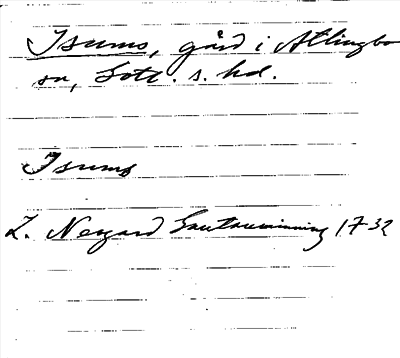 Isums, gård i Atlingbo
sn, Gotl. s. hd.
Isums
L. Neogard Gautauminning 1732